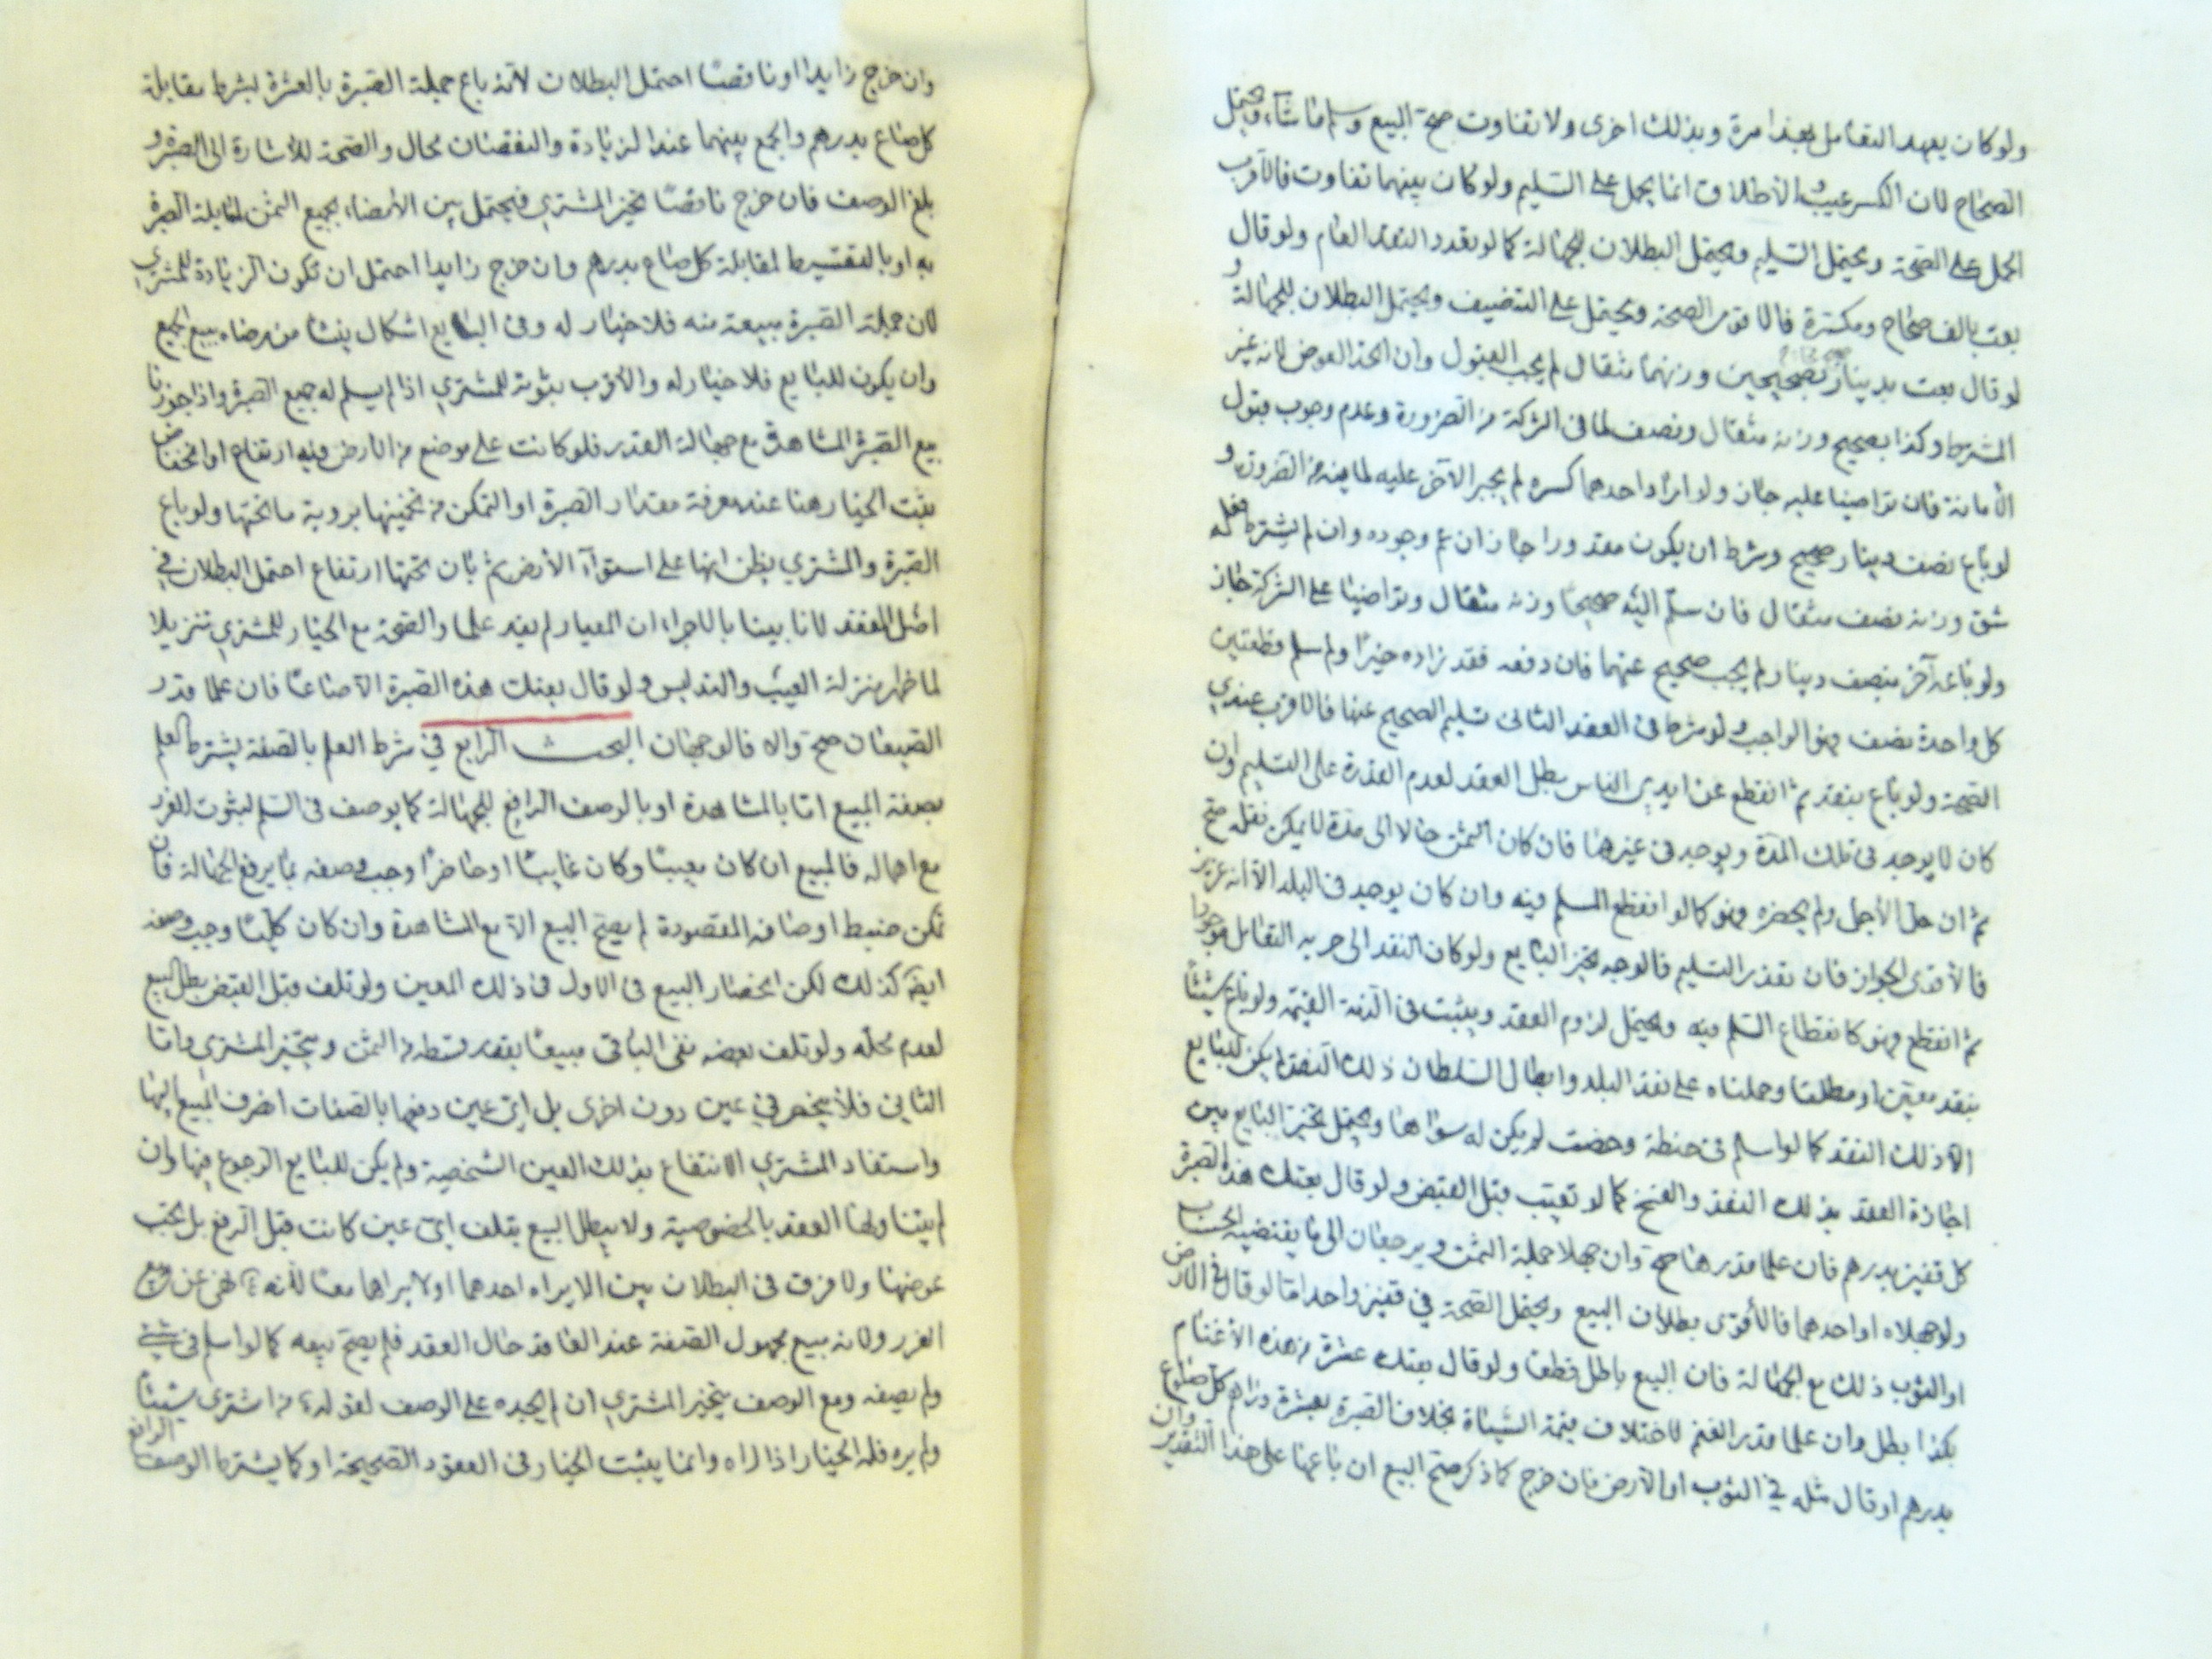 ولو كان يعهد التعامل بهذا مرة وبذلك اخرى ولا تفاوت صح البيع وسلم ما شاء ويحتمل
الصحاح لان الكسر عيب والاطلاق انما يحمل على السليم ولو كان بينهما تفاوت فالاقرب
الحمل على الصحة ويحتمل السليم ويحتمل البطلان للجهالة كما لو تعدد النقد العام ولو قال
بعت بالف صحاح ومكسرة فالاقوى الصحة ويحتمل على التنصيف ويحتمل البطلان للجهالة و
لو قال بعت بدينار صحيحين وزنهما مثقال لم يجب القبول وان اتحد العوض لانه غير
المشترط وكذا بصحيح وزنه مثقال ونصف لما فى الشركة من الضرورة وعدم وجوب قبول
الأمانة فان تراضيا عليه جاز ولو اراد احدهما كسره لم يجبر الآخر عليه لما فيه من الضرورة و
لو باع نصف دينار صحيح وشرط ان يكون مقدورا جاز ان عم وجوده وان لم يشترط فعليه
شق وزنه نصف مثقال فان سلم اليه صحيحا وزنه مثقال وتراضيا على الشركة جاز
ولو باعه آخر بنصف دينار لم يجب صحيح عنهما فان دفعه فقد زاده خيرا ولو سلم قطعتين
كل واحدة نصف فهو الواجب ولو شرط فى العقد الثانى تسليم الصحيح عنها فالاقرب عندي
الصحة ولو باع بنقد ثم انقطع عن ايدى الناس بطل العقد لعدم القدرة على التسليم وان
كان لا يوجد فى تلك المدة ويوجد فى غيرها فان كان الثمن حالا الى مدة لا يمكن نقله صح
ثم ان حل الأجل ولم يحضره فهو كما لو انقطع المسلم فيه وان كان يوجد فى البلد الا انه عزيز
فالأقوى الجواز فان تعذر التسليم فالوجه تخير البايع ولو كان النقد الى جريه التعامل موجودا
ثم انقطع فهو كانقطاع السلم فيه ويحتمل لزوم العقد ويثبت فى الذمة القيمة ولو باع شيئا
بنقد معين او مطلقا وحملناه على نقد البلد وابطال السلطان ذلك النقد لم يكن للبايع
الا ذلك النقد كما لو اسلم فى حنطة وخصت لم يكن له سواها ويحتمل تخير البايع بين
اجازة العقد بذلك النقد والفسخ كما لو تعيب قبل القبض ولو قال بعتك هذه الصبرة
كل قفيز بدرهم فان علما قدرها صح وان جهلا جملة الثمن ويرجعان الى ما يقتضيه الحساب
ولو جهلاه او احدهما فالأقوى بطلان البيع ويحتمل الصحة في قفيز واحد اما لو قال في الارض
او الثوب ذلك مع الجهالة فان البيع باطل قطعا ولو قال بعتك عشرة من هذه الأغنام
بكذا بطل وان علما قدر الغنم لاختلاف قيمة الشياة بخلاف الصبرة بعشرة دراهم كل صاع
بدرهم او قال مثله في الثوب او الارض فان خرج كما ذكر صح البيع ان باعها على هذا التقدير وان
وان خرج زايدا او ناقصا احتمل البطلان لأنه باع جملة الصبرة بالعشرة بشرط مقابلة
كل صاع بدرهم والجمع بينهما عند الزيادة والنقصان محال والصحة للأشارة الى الصبرة و
بلغ الوصف فان خرج ناقصا تخير المشتري فيحتمل بين الأمضاء بجميع الثمن لمقابلة الصبرة
به او بالتقسيط لمقابلة كل صاع بدرهم وان خرج زايدا احتمل ان تكون الزيادة للمشتري
لان جملة الصبرة مبيعة منه فلا خيار له وفى البايع اشكال ينشأ من رضاه ببيع الجميع
وان يكون للبايع فلا خيار له والأقرب ثبوته للمشتري اذا لم يسلم له جميع الصبرة واذا جوزنا
بيع الصبرة المشاهدة مع جهالة القدر فلو كانت على موضع من الارض فيه ارتفاع او انخفاض
يثبت الخيار هنا عند معرفة مقدار الصبرة او التمكن من تخمينها برؤية ما تحتها ولو باع
الصبرة والمشتري يظن انها على استوآء الأرض ثم بان تحتها ارتفاع احتمل البطلان في
اصل العقد لانا بينا بالاجراء ان المعيار لم يفد علما والصحة مع الخيار للمشتري تنزيلا
لما ظهر منزلة العيب والتدليس ولو قال بعتك هذه الصبرة الا صاعا فان علما قدر
الصيعان صح والا فالوجهان البحث الرابع في شرط العلم بالصفة يشترط العلم
بصفة المبيع اما بالمشاهدة او بالوصف الرافع للجهالة كما يوصف فى السلم لثبوت الغرر
مع اهماله فالمبيع ان كان معينا وكان غايبا او حاضرا وجب وصفه بما يرفع الجهالة فان
تكن ضبط اوصافه المقصودة لم يصح البيع الا مع المشاهدة وان كان كليا وجب وصفه
ايضا كذلك لكن انحصار البيع فى الاول فى ذلك المعين ولو تلف قبل القبض بطل البيع
لعدم محله ولو تلف بعضه بقى الباقى مبيعا بقدر قسطه من الثمن ويتخير المشترى واما
الثاني فلا ينحصر في عين دون اخرى بل اى عين دفعها بالصفات انصرف المبيع اليها
واستفاد المشتري الانتفاع بذلك العين الشخصية ولم يكن للبايع الرجوع فيها وان
لم يتناولها العقد بالخصوصية ولا يبطل البيع بتلف اى عين كانت قبل الدفع بل يجب
عوضها ولا فرق فى البطلان بين الا يراه احدهما او لا يراهما معا لأنه ع نهى عن بيع
الغرر ولانه بيع مجهول الصفة عند العاقد حال العقد فلم يصح بيعه كما لو اسلم فى شئ
ولم يصفه ومع الوصف يتخير المشتري ان لم يجده على الوصف لقوله ع من اشترى شيئا
ولم يره فله الخيار اذا رآه وانما يثبت الخيار فى العقود الصحيحة او كما يشترط الوصف الرافع